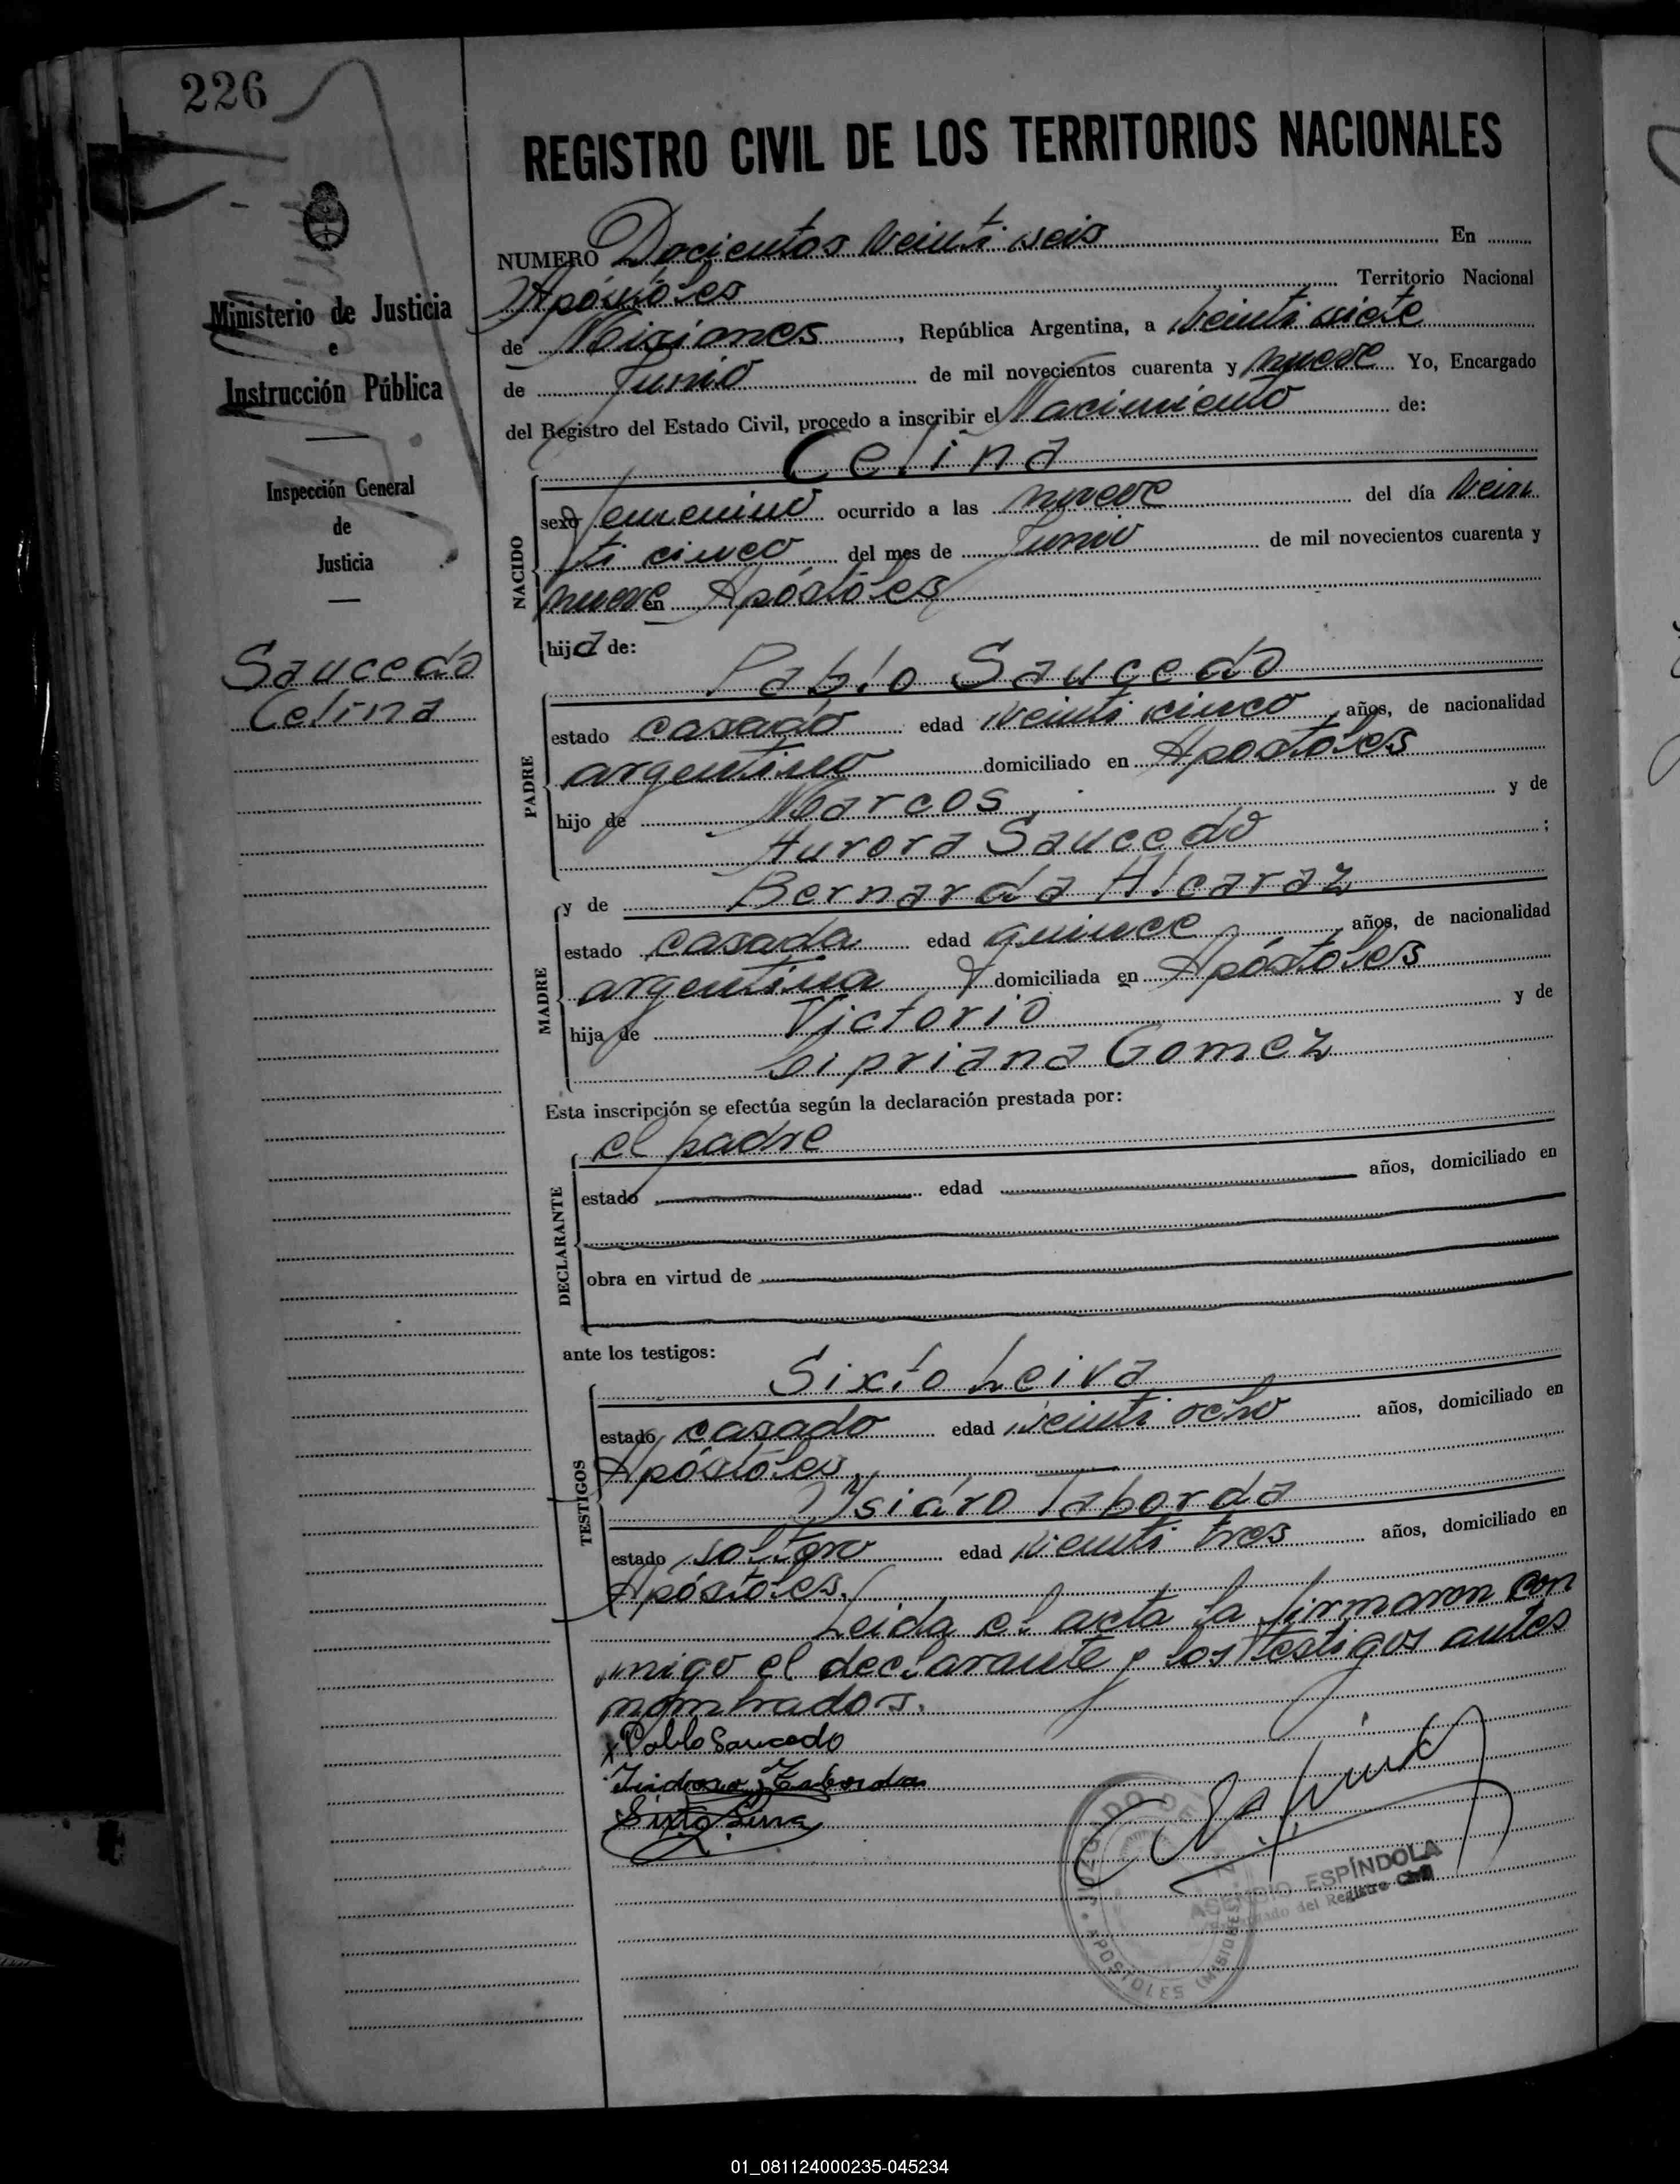 226
REGISTRO CIVIL DE LOS TERRITORIOS NACIONALES
Ministerio de Justicia
e
Instrucción Pública
Inspección General
de
Justicia
Saucedo
Celina
NUMERO Docientos Veinti seis En
Apóstoles Territorio Nacional
de Misiones, República Argentina, a Veinti siete
de Junio de mil novecientos cuarenta y nueve Yo, Encargado
del Registro del Estado Civil, procedo a inscribir el Nacimiento de:
Celina
NACIDO
sexo femenino ocurrido a las nueve del día Vein
ti cinco del mes de Junio de mil novecientos cuarenta y
nueve en Apóstoles
hija de:
Pablo Saucedo
PADRE
estado casado edad veinti cinco, años, de nacionalidad
argentino domiciliado en Apostoles
hijo de Marcos y de
Aurora Saucedo ;
y de Bernarda Alcaraz
MADRE
estado casada edad quince, años, de nacionalidad
argentina domiciliada en Apóstoles
hija de Victorio y de
Sipriana Gomez
Esta inscripción se efectúa según la declaración prestada por:
el padre
DECLARANTE
estado edad años, domiciliado en
obra en virtud de
ante los testigos:
Sixto Leiva
TESTIGOS
estado casado edad veinti ocho años, domiciliado en
Apóstoles,
Ysidro Taborda
estado soltero edad vienti tres años, domiciliado en
Apóstoles.
Leida el acta la firmaron con
migo el declarante y los testigos antes
nombrados.
x Pablo Saucedo
Isidoro Taborda
Sixto Leiva
JUZGADO DE
APOSTOLES (MISIONES)
ASENCIO ESPÍNDOLA
Encargado del Registro Civil
01_081124000235-045234